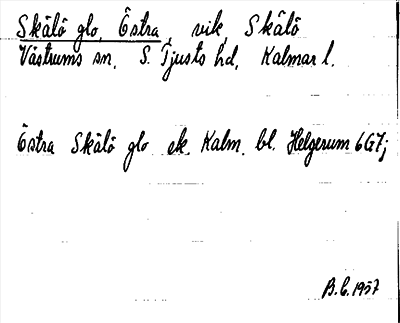 Skälö glo, Östra, vik, Skälö
Västrums sn, S. Tjusts hd, Kalmar l.
Östra Skälö glo ek. Kalm. bl. Helgerum 6G7j
B.C. 1937